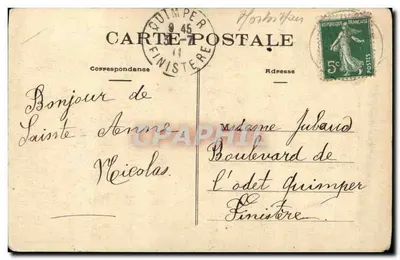 QUIMPER
9 45
11
FINISTERE
CARTE-POSTALE
REPUBLIQUE FRANCAISE
5c
POSTES
Correspondance
Adresse
Bonjour de
Sainte-Anne
Nicolas
CPAPHIL
Madame Jubaud
Boulevard de
l'odet Quimper
Finistère.